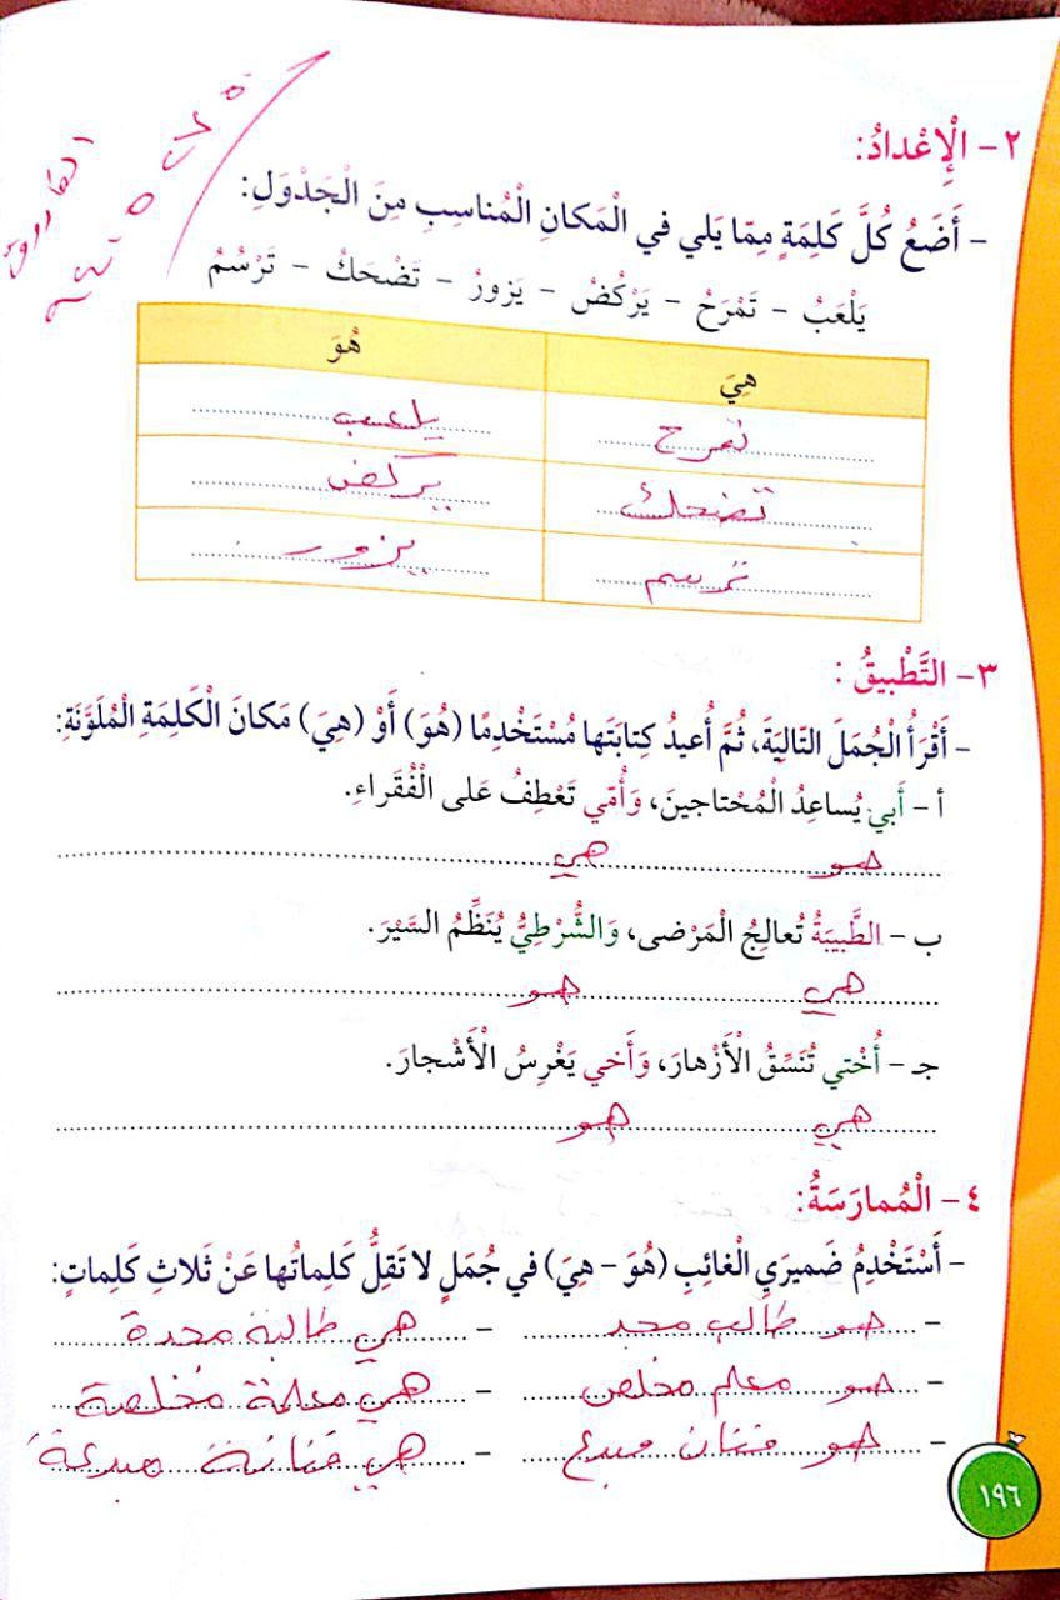 ٢- الْإِعْدادُ:
- أَضَعُ كُلَّ كَلِمَةٍ مِمّا يَلي في الْمَكانِ الْمُناسِبِ مِنَ الْجَدْوَلِ:
يَلْعَبُ - تَمْرَحُ - يَرْكُضُ - يَزورُ - تَضْحَكُ - تَرْسُمُ
هِيَ هُوَ
تمرح يلعب
تضحك يركض
ترسم يزور
٣- التَّطْبيقُ:
- أَقْرَأُ الْجُمَلَ التّاليَةَ، ثُمَّ أُعيدُ كِتابَتَها مُسْتَخْدِمًا (هُوَ) أَوْ (هِيَ) مَكانَ الْكَلِمَةِ الْمُلَوَّنَةِ:
أ - أَبي يُساعِدُ الْمُحْتاجينَ، وَأُمّي تَعْطِفُ عَلى الْفُقَراءِ.
هو هي
ب - الطَّبيبَةُ تُعالِجُ الْمَرْضى، وَالشُّرْطِيُّ يُنَظِّمُ السَّيْرَ.
هي هو
جـ - أُخْتي تُنَسِّقُ الْأَزْهارَ، وَأَخي يَغْرِسُ الْأَشْجارَ.
هي هو
٤- الْمُمارَسَةُ:
- أَسْتَخْدِمُ ضَميرَيِ الْغائِبِ (هُوَ - هِيَ) في جُمَلٍ لا تَقِلُّ كَلِماتُها عَنْ ثَلاثِ كَلِماتٍ:
- هو طالب مجد - هي طالبة مجدة
- هو معلم مخلص - هي معلمة مخلصة
- هو فنان مبدع - هي فنانة مبدعة
١٩٦